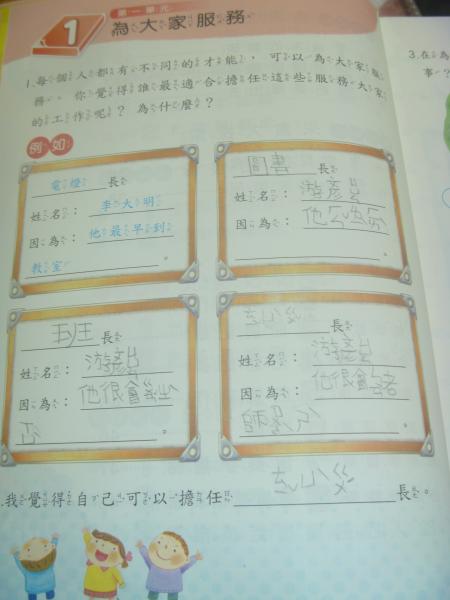 第一單元
1 為大家服務
1.每個人都有不同的才能，可以為大家服
務。你覺得誰最適合擔任這些服務大家
的工作呢？為什麼？
例如
電燈長
姓名：李大明
因為：他最早到
教室。
圖書長
姓名：游彥
因為：他
。
班長
姓名：游彥
因為：他很會
。
長
姓名：游彥
因為：他很會
師
。
.我覺得自己可以擔任 長。
3.在
事？